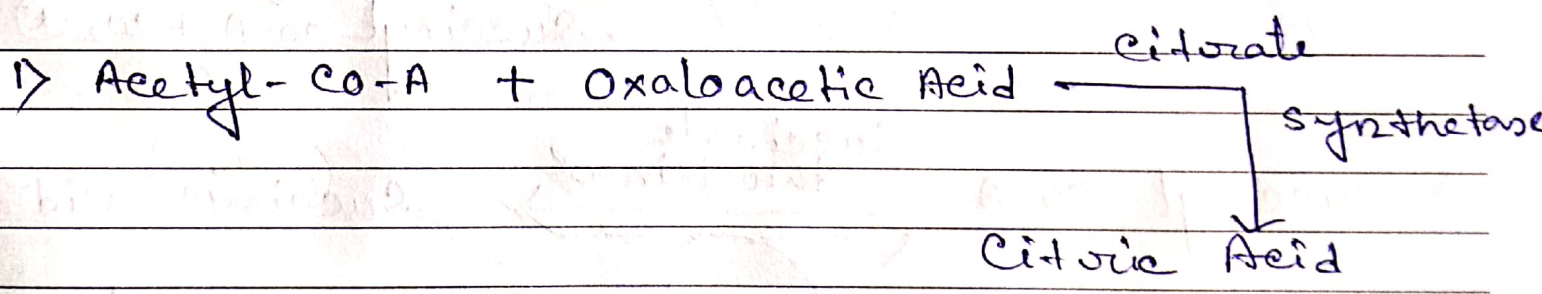 1) Acetyl-CO-A + Oxaloacetic Acid
Citrate
Synthetase
Citric Acid